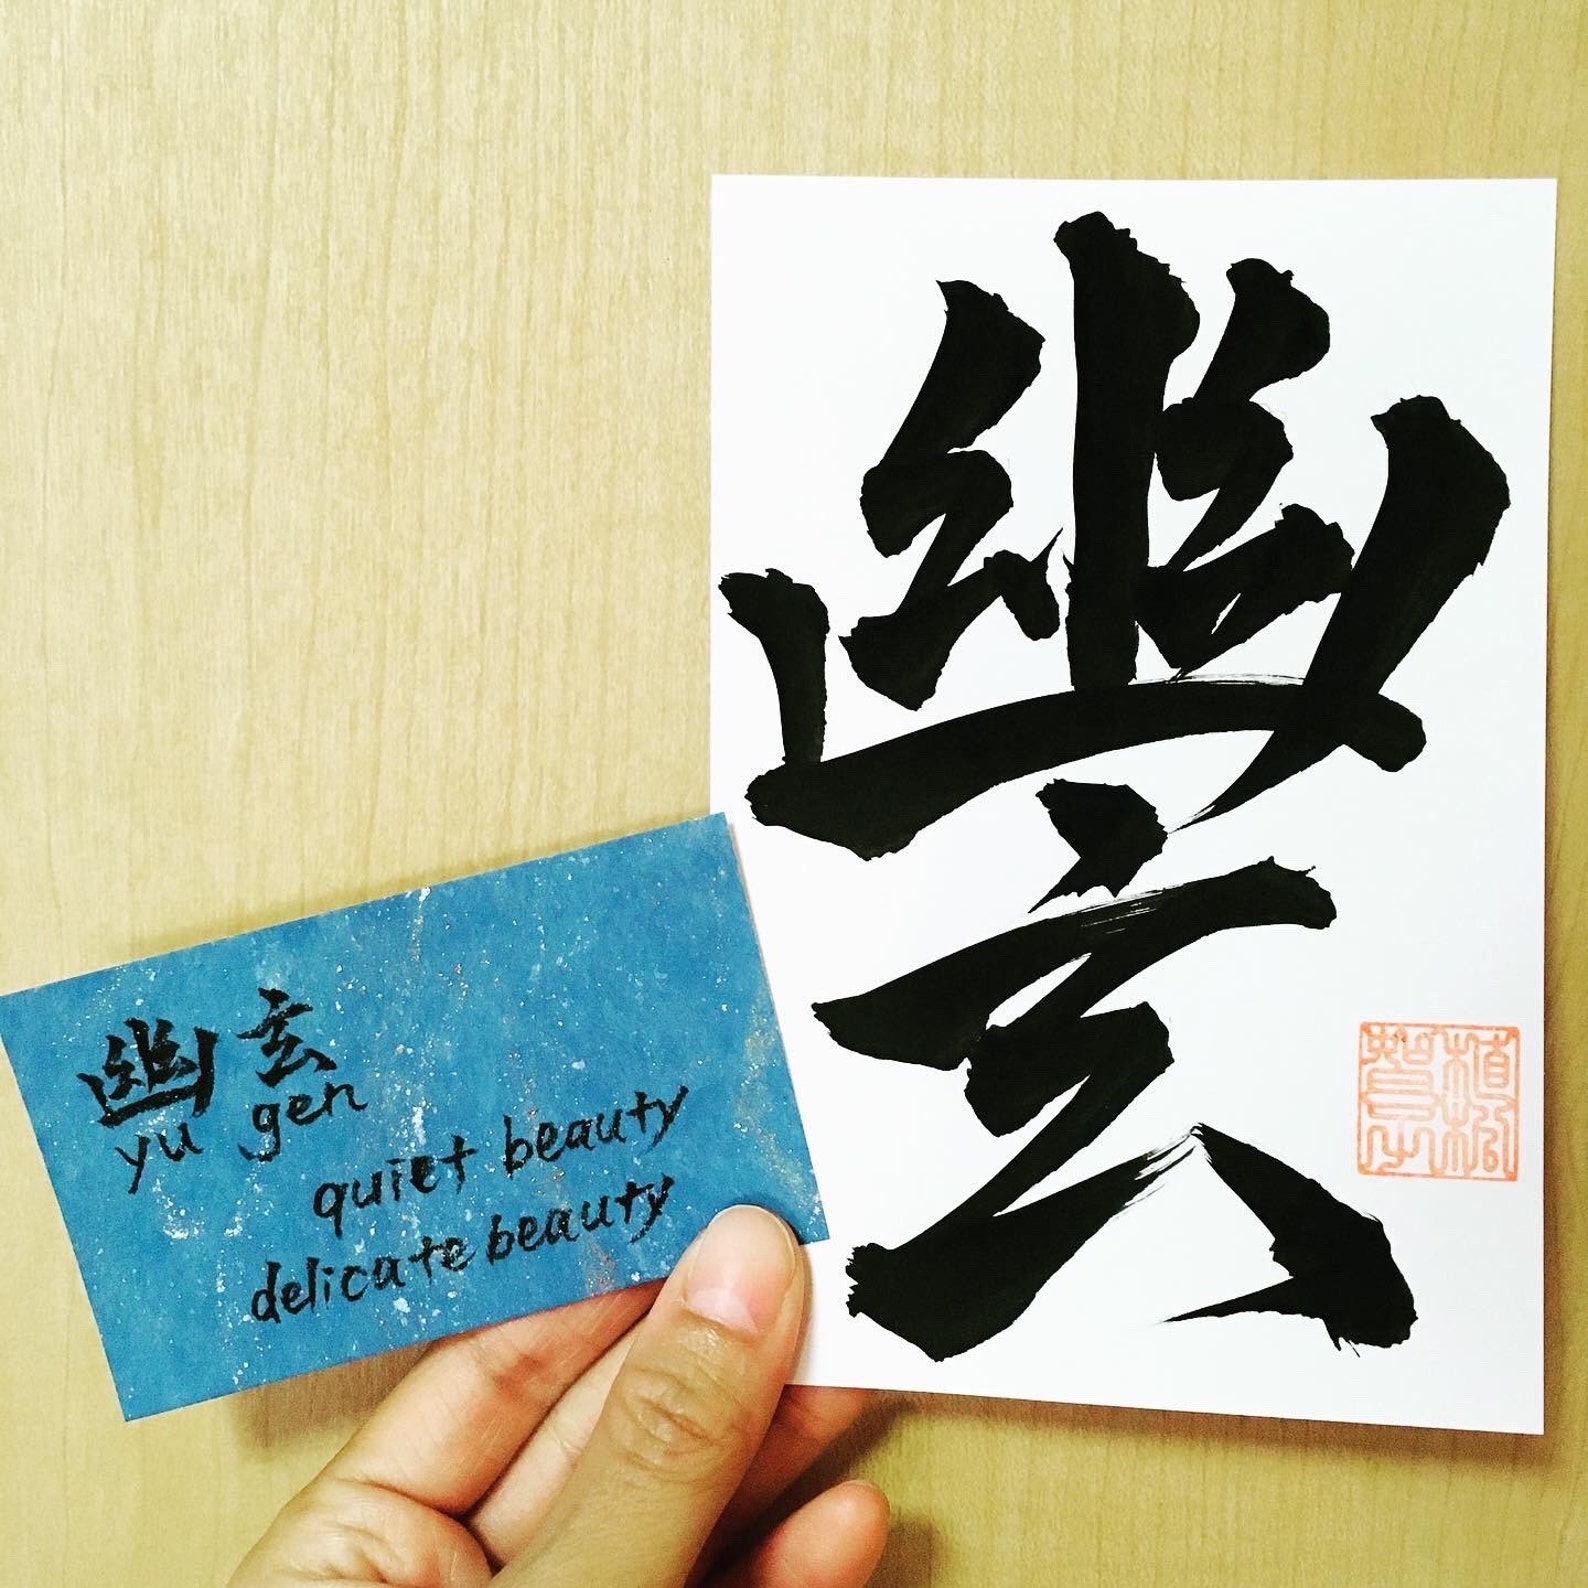 幽玄
yu gen
quiet beauty
delicate beauty
幽
玄